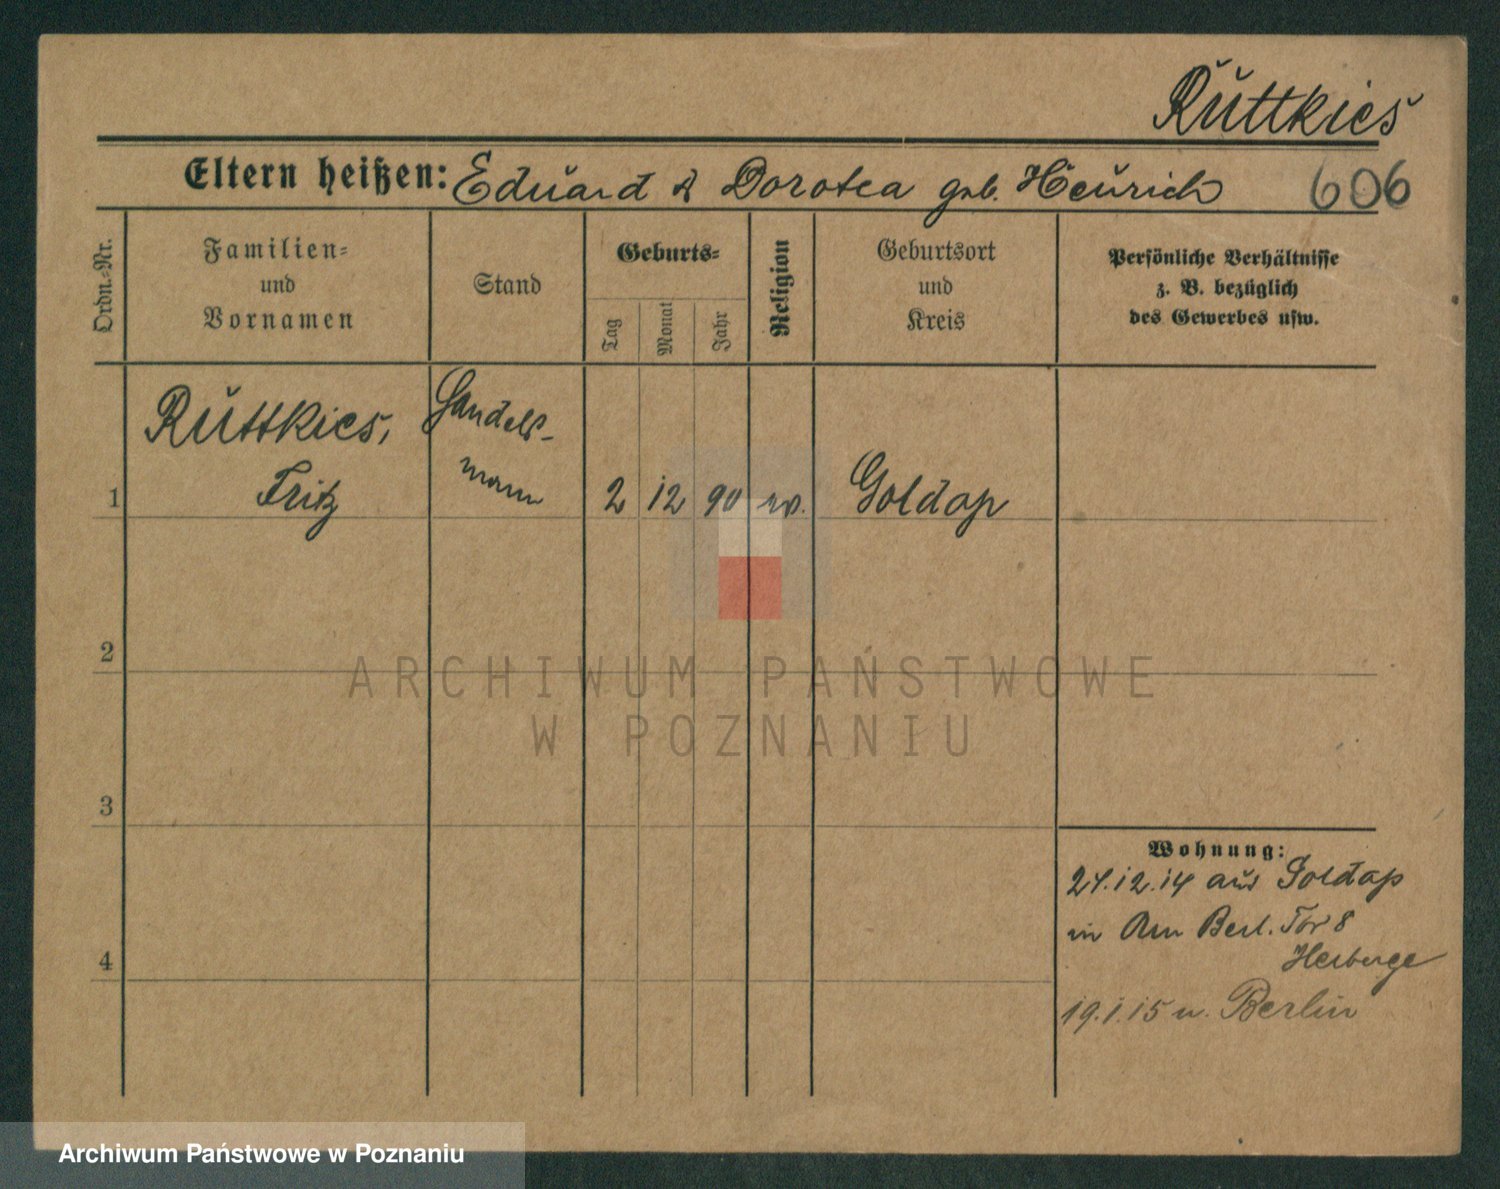 Ruttkies
Eltern heißen: Eduard & Dorotea geb. Heurich
606
Ordn.-Nr.
Familien-
und
Vornamen
Stand
Geburts-
Tag
Monat
Jahr
Religion
Geburtsort
und
Kreis
Persönliche Verhältnisse
z. B. bezüglich
des Gewerbes usw.
Ruttkies,
Fritz
Handels-
mann
1
2 12 90 ev. Goldap
2
3
4
ARCHIWUM PAŃSTWOWE
W POZNANIU
Wohnung:
24.12.14 aus Goldap
in Am Berl. Tor 8
Herberge
19.1.15 n. Berlin
Archiwum Państwowe w Poznaniu